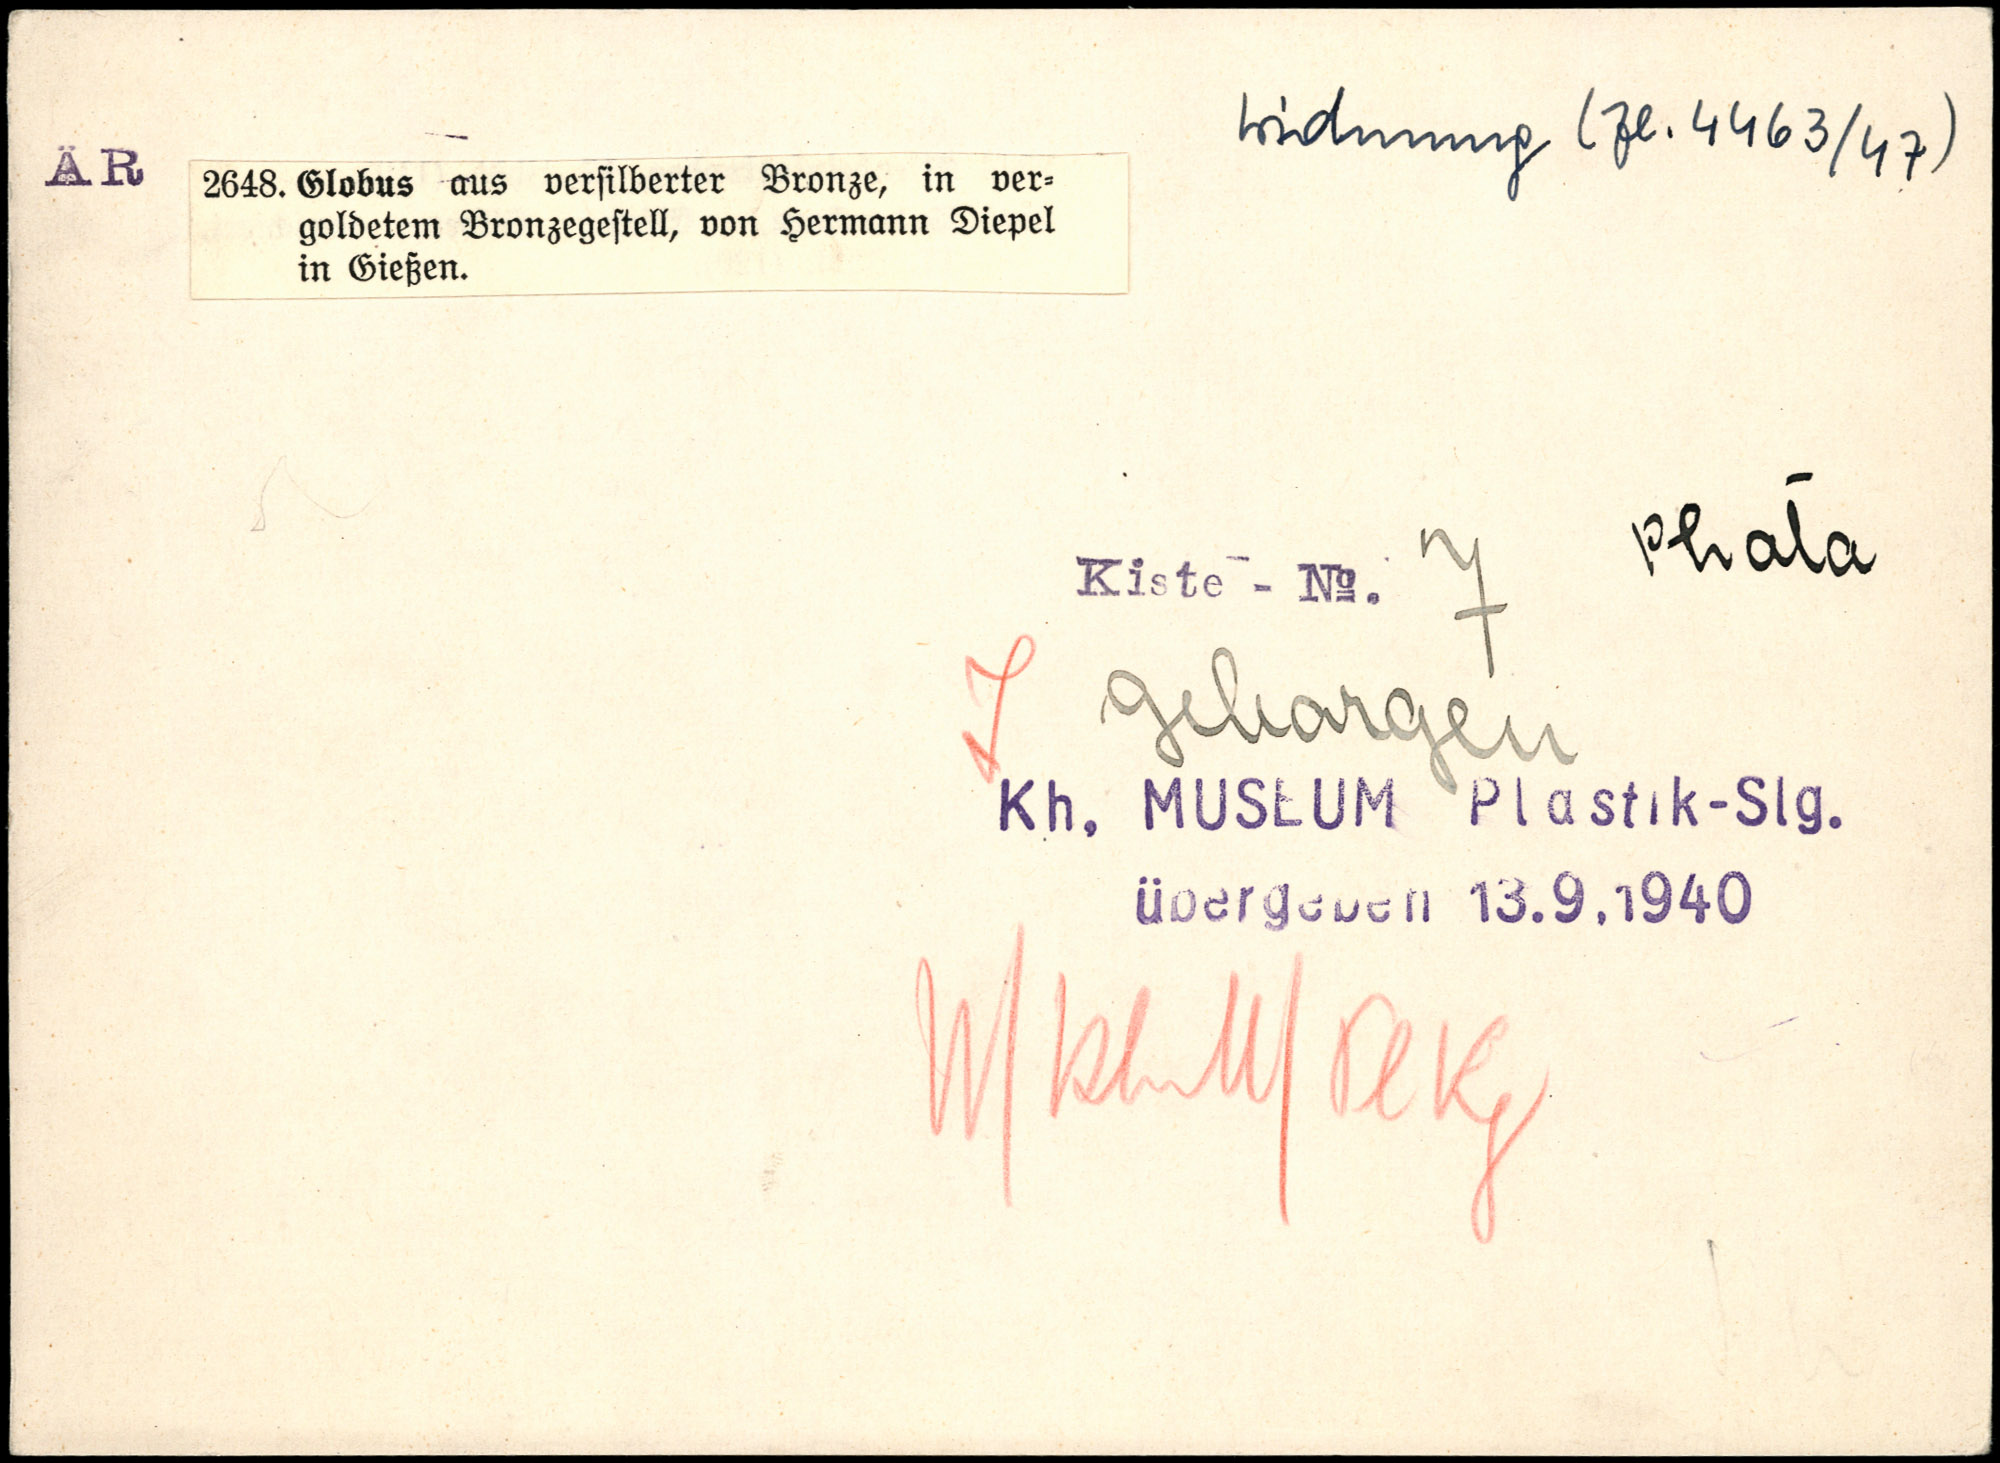 Widmung (Zl. 4463/47)
ÄR
2648. Globus aus versilberter Bronze, in ver-
goldetem Bronzegestell, von Hermann Diepel
in Gießen.
Photo
Kiste - No. 7
geborgen
Kh. MUSEUM Plastik-Slg.
übergeben 13.9.1940
W/KhM/Pl Kg